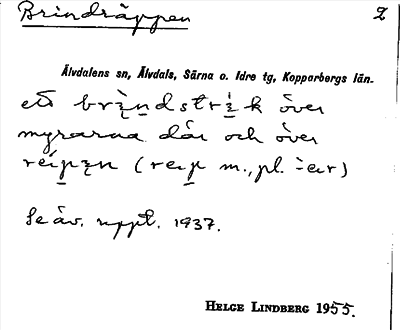 Brindräppen
2
Älvdalens sn, Älvdals, Särna o. Idre tg, Kopparbergs län.
ett brindstrik över
myrarna där och över
(reip m., pl. -er)
Se äv. uppt. 1937.
HELGE LINDBERG 1955.